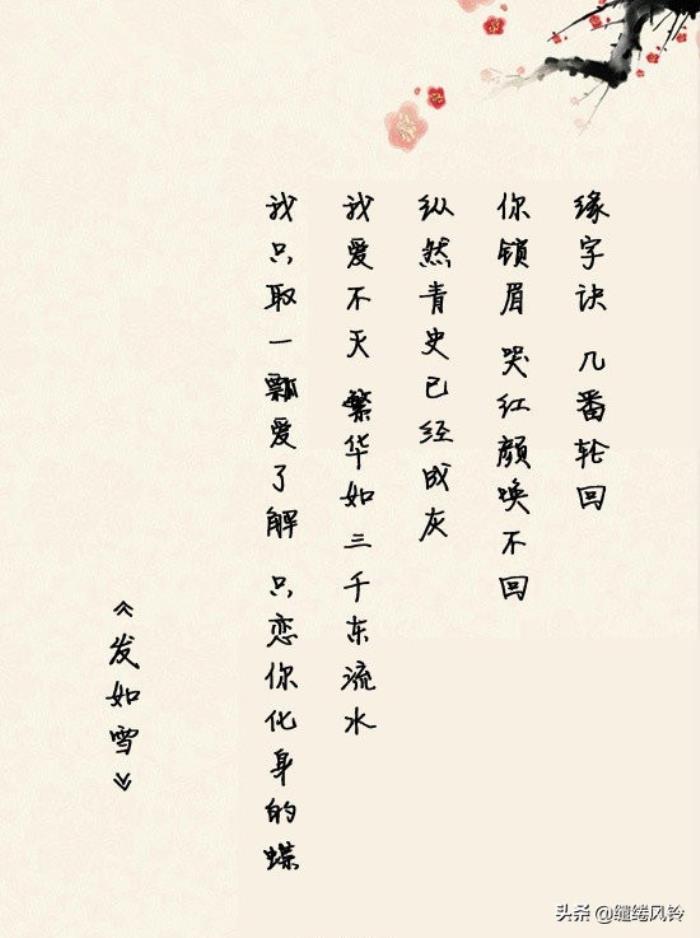 缘字诀 几番轮回
你锁眉 哭红颜唤不回
纵然青史已经成灰
我爱不灭 繁华如三千东流水
我只取一瓢爱了解 只恋你化身的蝶
《发如雪》
头条 @缱绻风铃